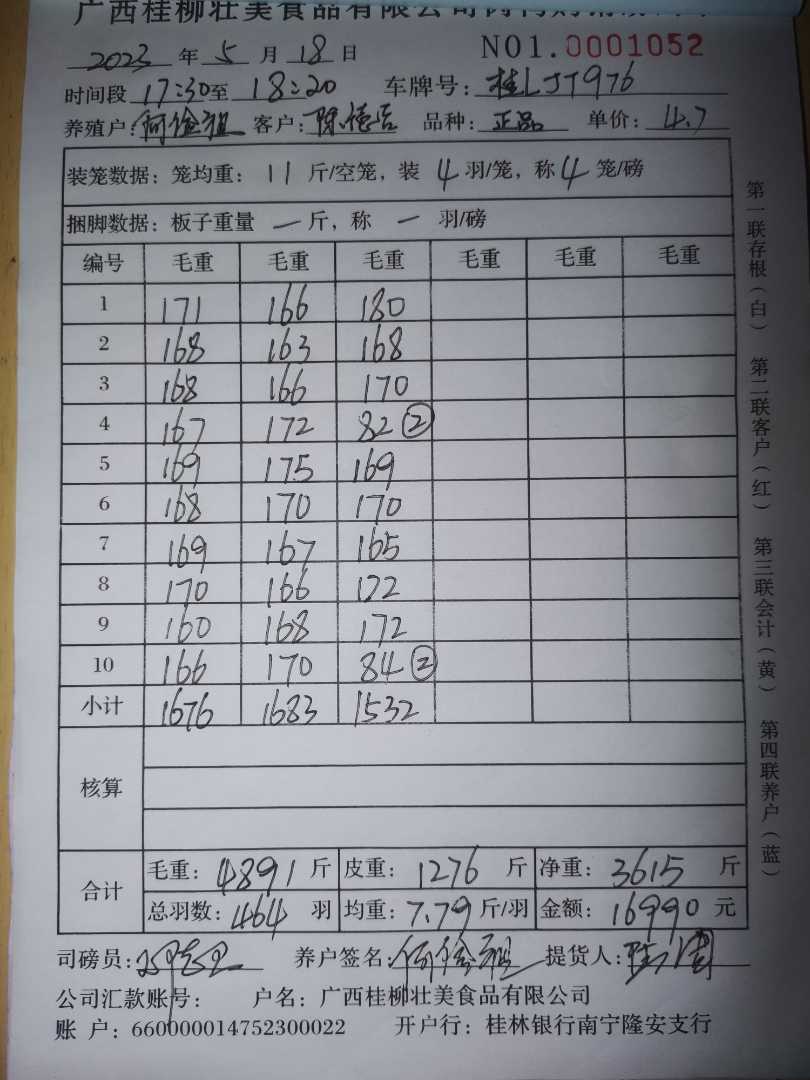 广西桂柳壮美食品有限公司
2023 年 5 月 18 日 NO1.0001052
时间段 17:30 至 18:20 车牌号: 桂LJT976
养殖户: 何俭祖 客户: 品种: 正品 单价: 4.7
装笼数据: 笼均重: 11 斤/空笼, 装 4 羽/笼, 称 4 笼/磅
捆脚数据: 板子重量 一 斤, 称 一 羽/磅
编号 毛重 毛重 毛重 毛重 毛重 毛重
1 171 166 180
2 168 163 168
3 168 166 170
4 167 172 82 ②
5 169 175 169
6 168 170 170
7 169 167 165
8 170 166 172
9 160 168 172
10 166 170 84 ②
小计 1676 1683 1532
核算
合计
毛重: 4891 斤 皮重: 1276 斤 净重: 3615 斤
总羽数: 464 羽 均重: 7.79 斤/羽 金额: 16990 元
司磅员: 养户签名: 何俭祖 提货人:
公司汇款账号: 户名: 广西桂柳壮美食品有限公司
账 户: 660000014752300022 开户行: 桂林银行南宁隆安支行
第一联存根(白) 第二联客户(红) 第三联会计(黄) 第四联养户(蓝)